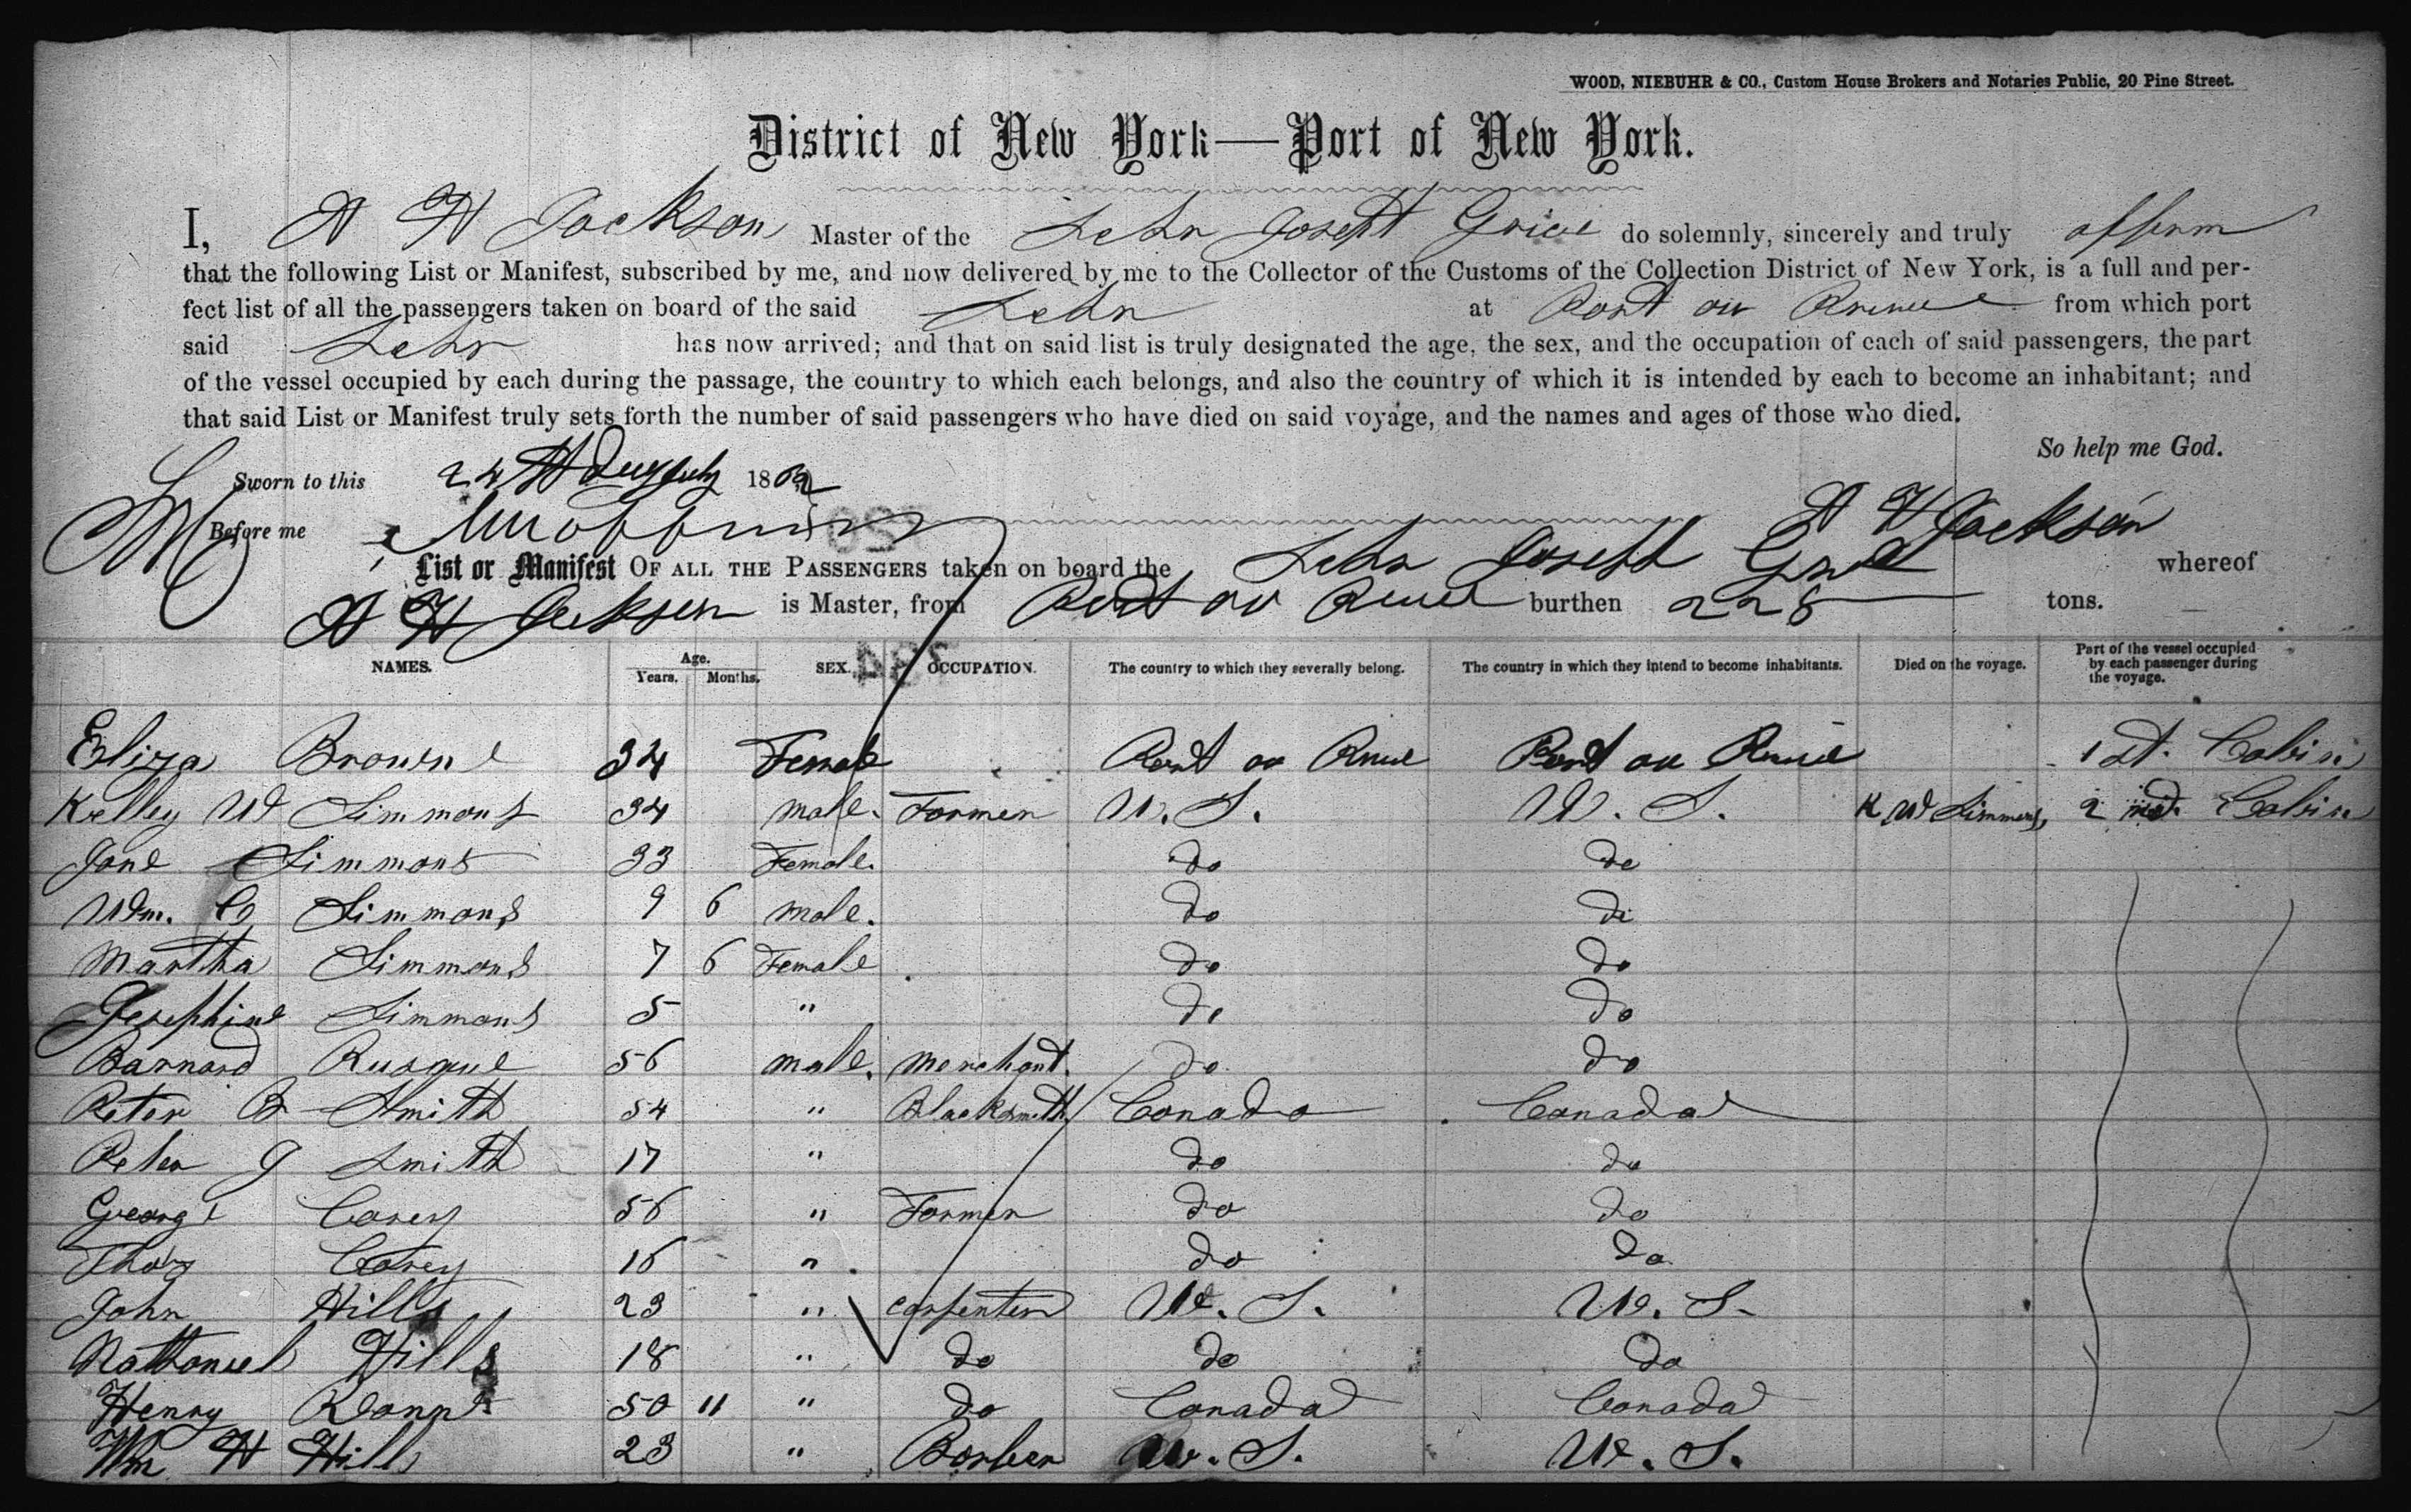 WOOD, NIEBUHR & CO., Custom House Brokers and Notaries Public, 20 Pine Street.
District of New York—Port of New York.
I, A H Jackson Master of the Schr Joseph Grice do solemnly, sincerely and truly affirm
that the following List or Manifest, subscribed by me, and now delivered by me to the Collector of the Customs of the Collection District of New York, is a full and per-
fect list of all the passengers taken on board of the said Schr at Port au Prince from which port
said Schr has now arrived; and that on said list is truly designated the age, the sex, and the occupation of each of said passengers, the part
of the vessel occupied by each during the passage, the country to which each belongs, and also the country of which it is intended by each to become an inhabitant; and
that said List or Manifest truly sets forth the number of said passengers who have died on said voyage, and the names and ages of those who died.
So help me God.
Sworn to this 24th July 1862
Before me A H Jackson
List or Manifest OF ALL THE PASSENGERS taken on board the Schr Joseph Grice whereof
A H Jackson is Master, from Port au Prince burthen 228 tons.
NAMES. Age. Years. Months. SEX. OCCUPATION. The country to which they severally belong. The country in which they intend to become inhabitants. Died on the voyage. Part of the vessel occupied by each passenger during the voyage.
Eliza Browne 34 Female Port au Prince Port au Prince 1st. Cabin
Kelley W Simmons 34 male. Farmer U. S. U. S. K W Simmons, 2nd. Cabin
Jane Simmons 33 Female. do do
Wm. C Simmons 9 6 male. do do
Martha Simmons 7 6 Female do do
Josephine Simmons 5 " do do
Barnard 56 male. merchant. do do
Peter B Smith 54 " Blacksmith Canada Canada
Peter J Smith 17 " do do
George Carey 56 " Farmer do do
Thos Carey 16 " do do
John Hills 23 " carpenter U. S. U. S.
Nathaniel Hills 18 " do do do
Henry 50 11 " do Canada Canada
Wm H Hills 23 " Barber U. S. U. S.